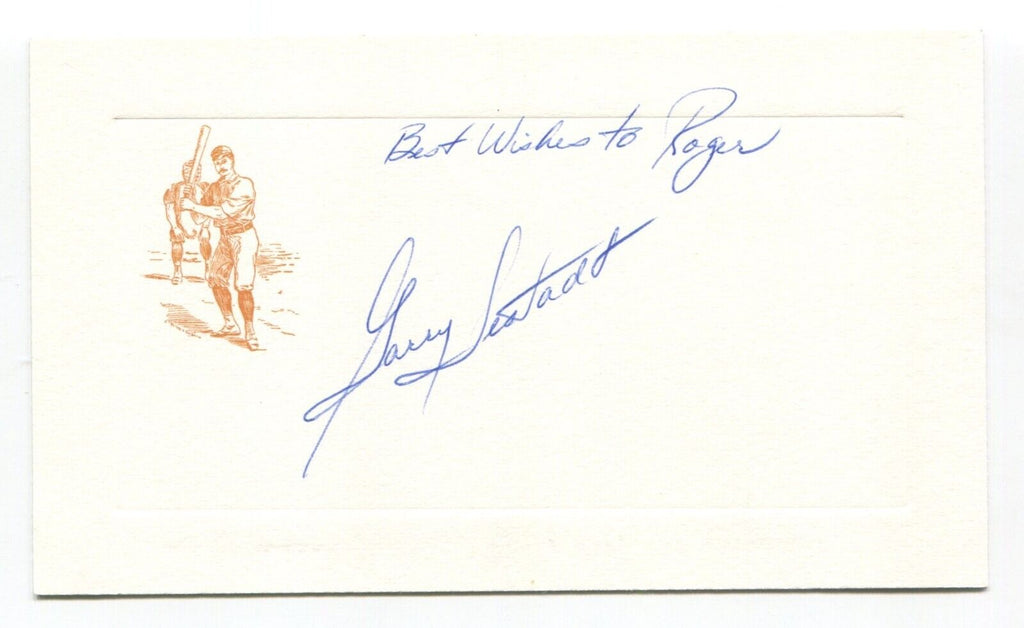 Best Wishes to Roger
Garry